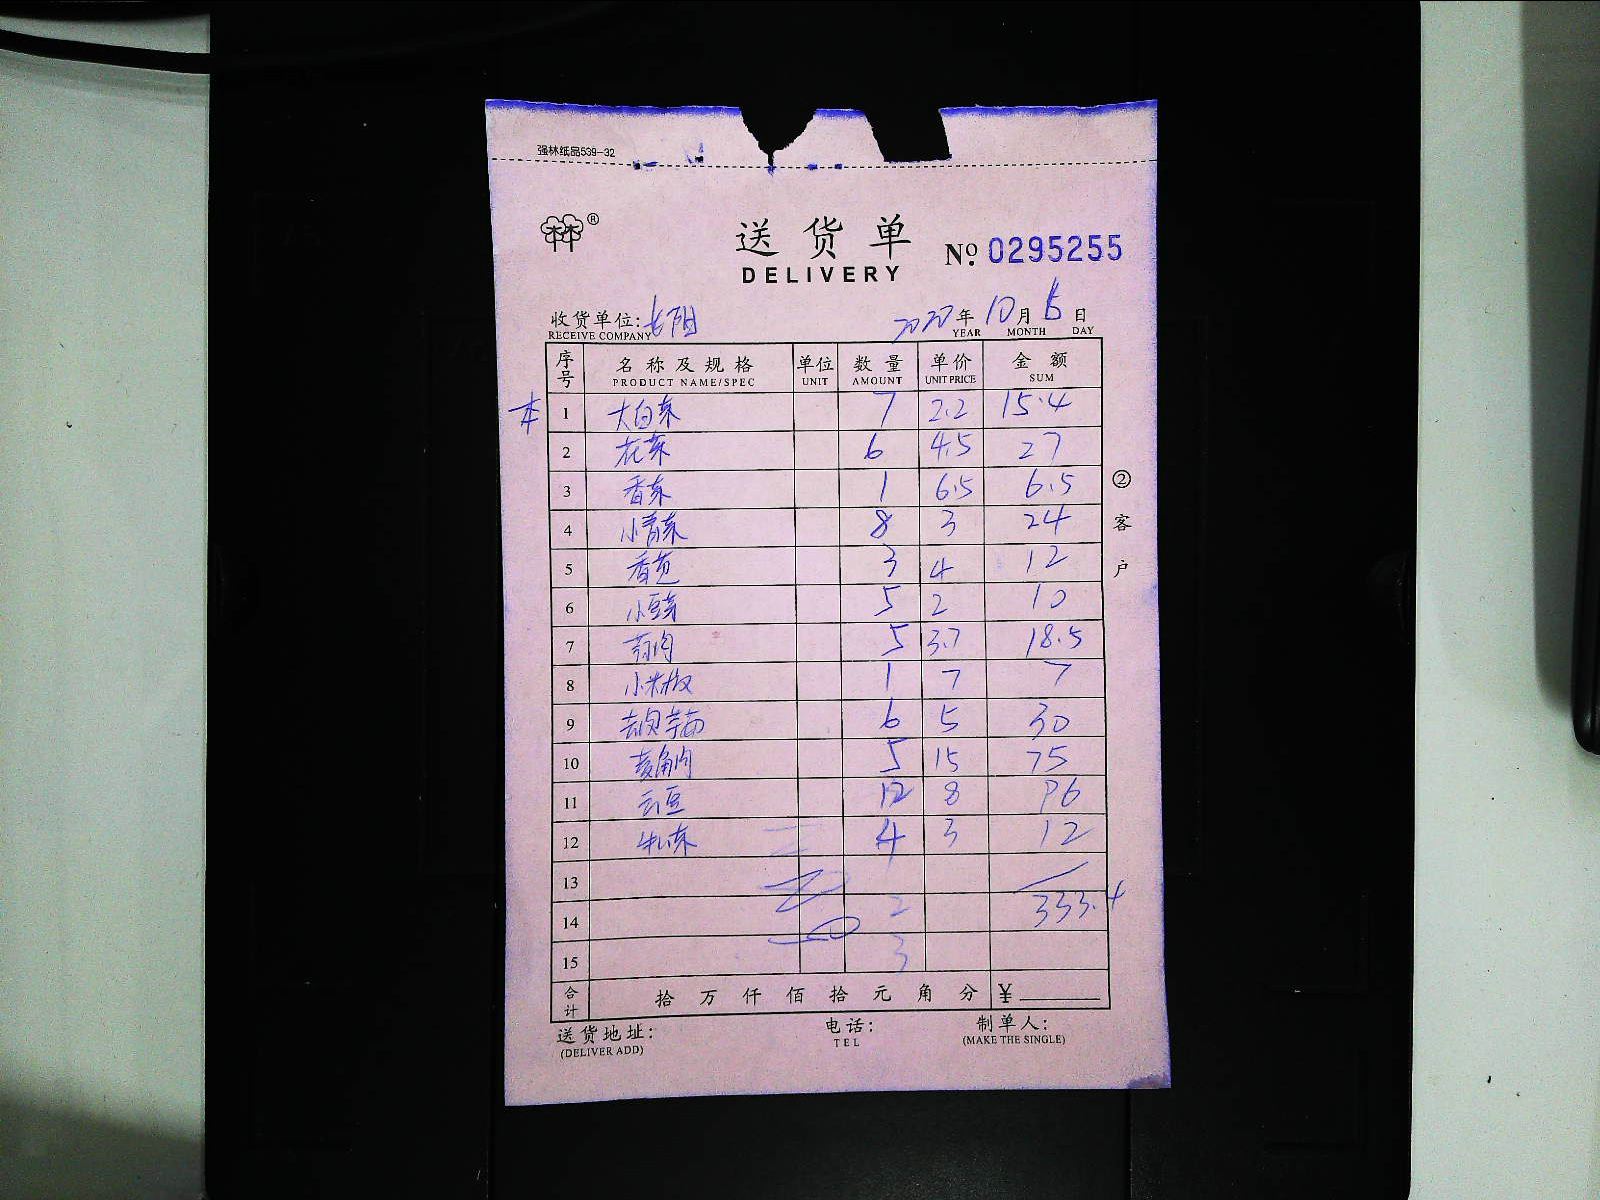 强林纸品539-32
®
送货单
DELIVERY
№ 0295255
收货单位: 2020年10月5日
RECEIVE COMPANY YEAR MONTH DAY
序号 名称及规格 单位 数量 单价 金额
PRODUCT NAME/SPEC UNIT AMOUNT UNIT PRICE SUM
1 大白菜 7 2.2 15.4
2 花菜 6 4.5 27
3 香菜 1 6.5 6.5
4 小青菜 8 3 24
5 香芹 3 4 12
6 小豆芽 5 2 10
7 5 3.7 18.5
8 小米椒 1 7 7
9 6 5 30
10 菱角肉 5 15 75
11 云豆 12 8 96
12 4 3 12
13
14 2 333.4
15 3
合计 拾万仟佰拾元角分 ¥
送货地址: 电话: 制单人:
(DELIVER ADD) TEL (MAKE THE SINGLE)
②客户